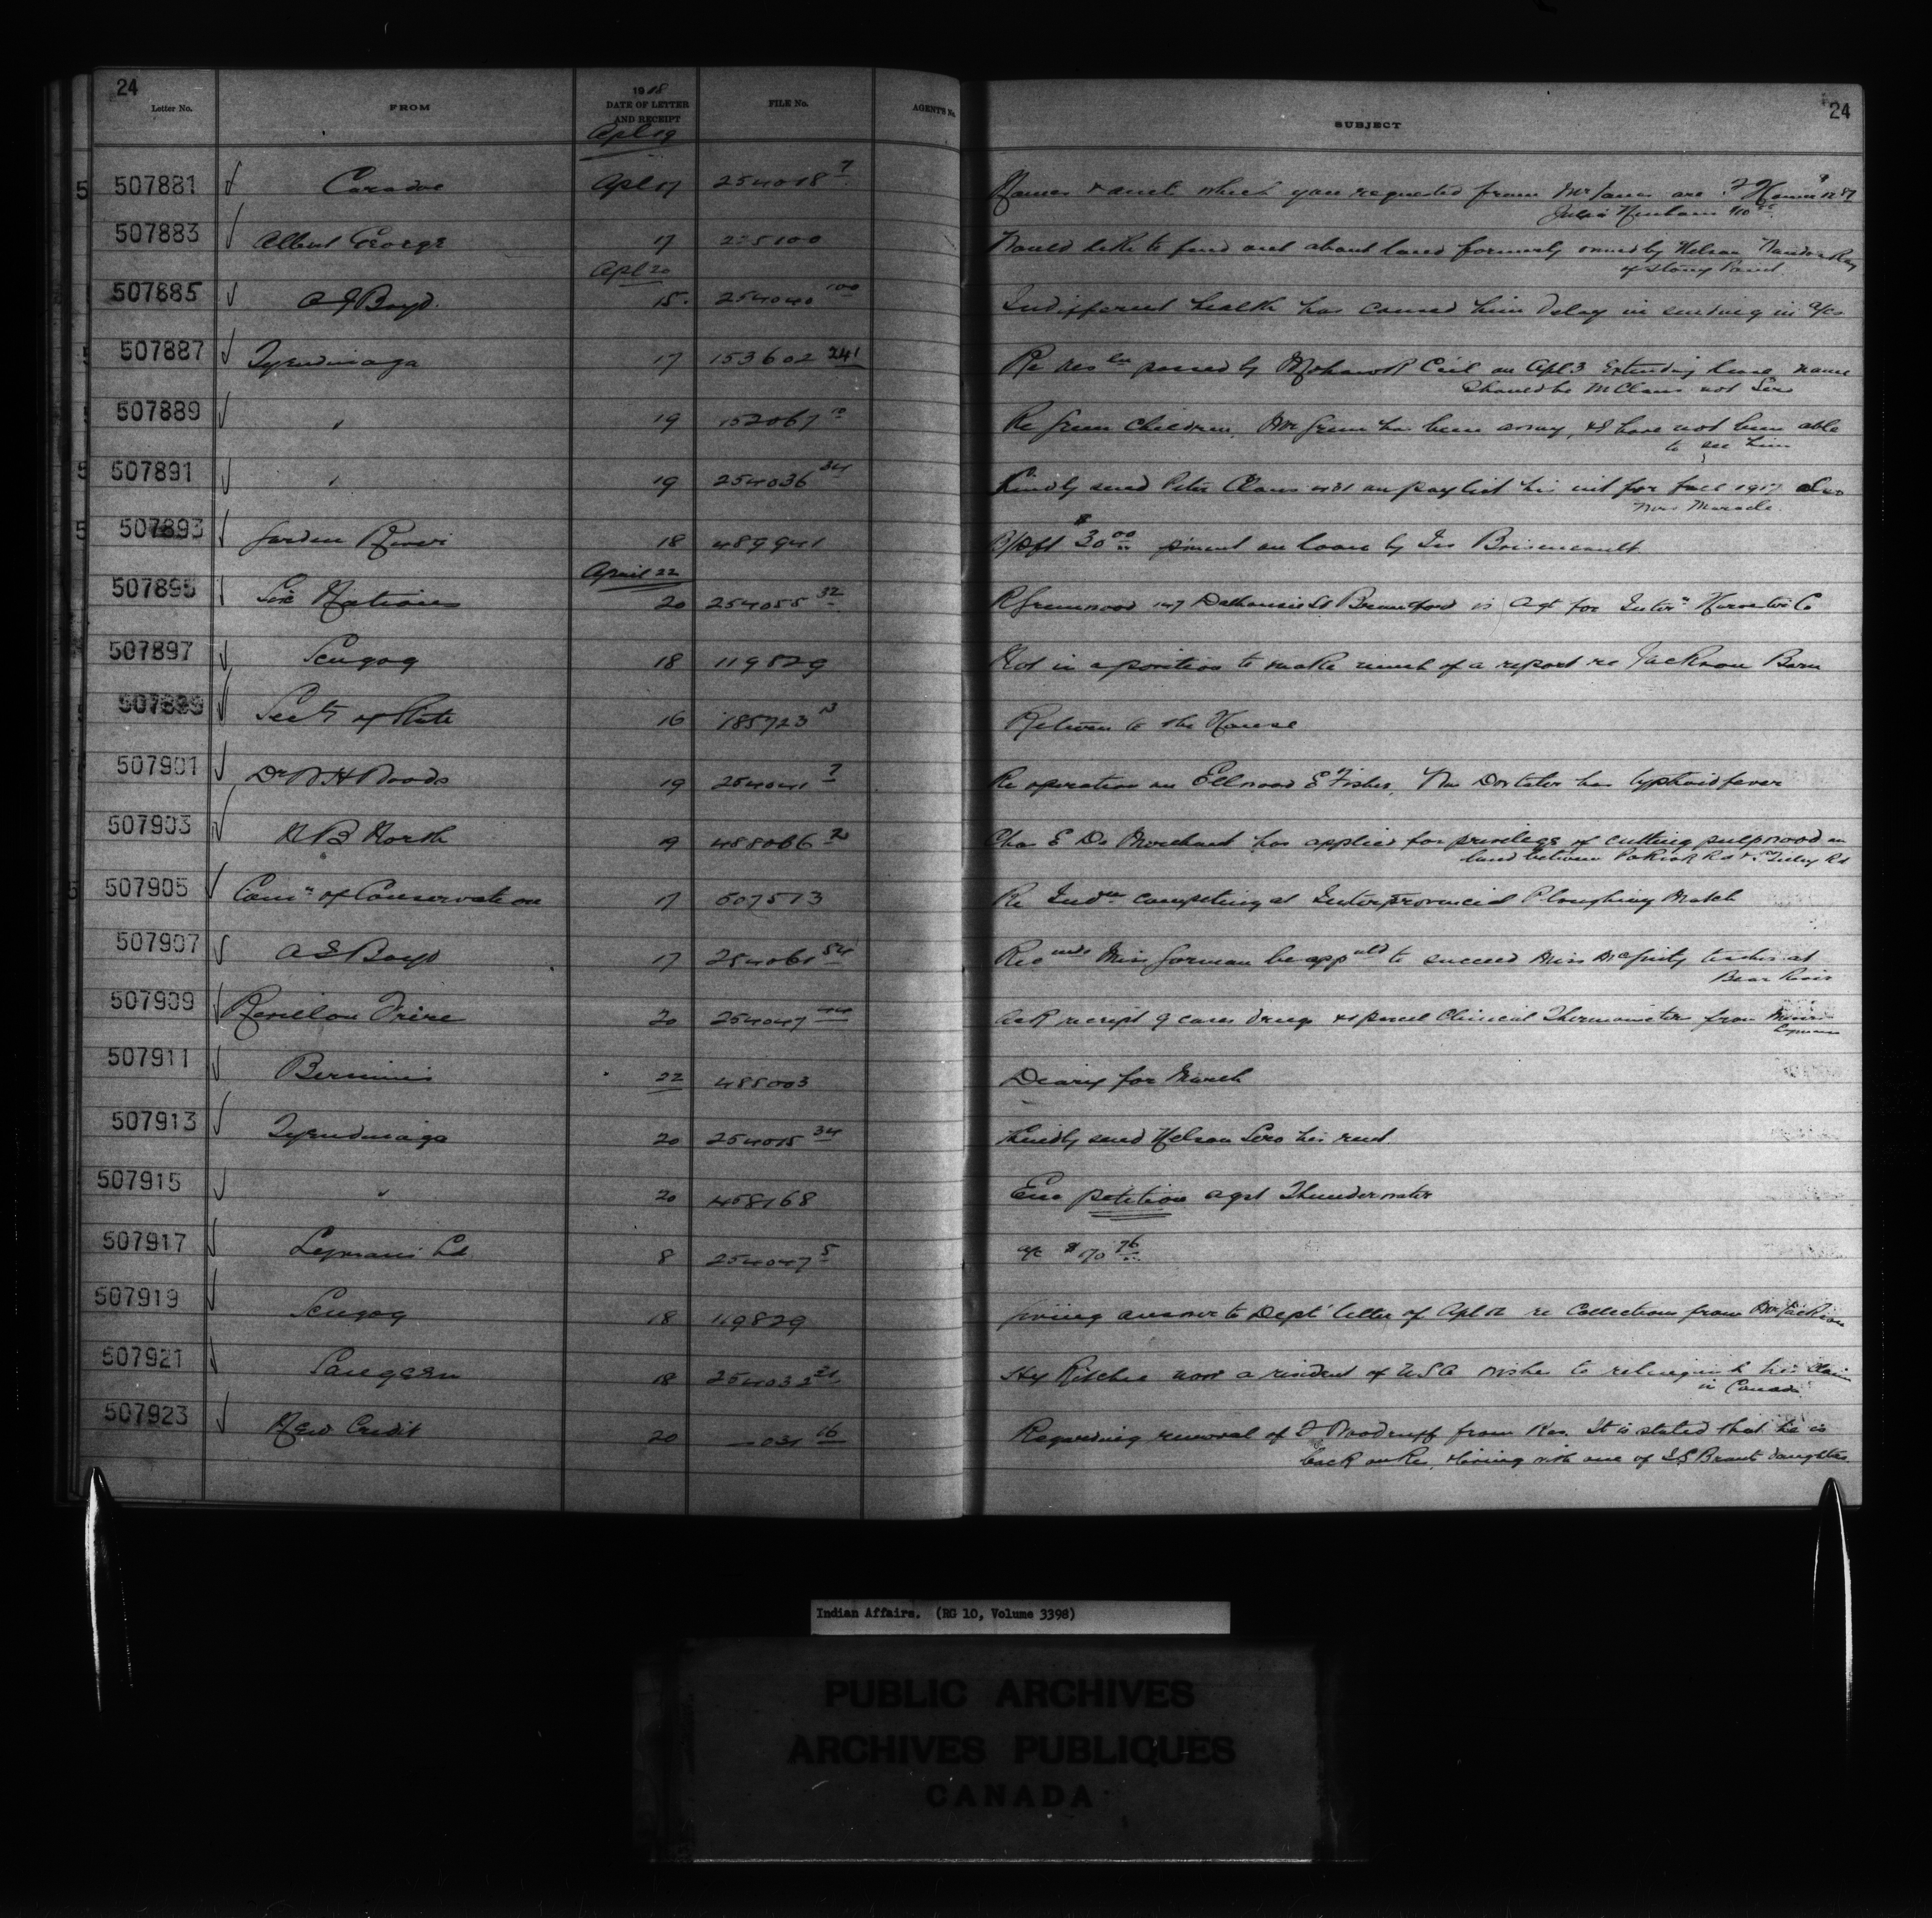 24
Letter No. FROM 1918 DATE OF LETTER AND RECEIPT FILE No. AGENT'S No. SUBJECT 24
Apl 19
507881 Caradoc Apl 17 254018 7 Names & amts which you requested from Mr Jones are
Julia 
507883 Albert George 17 225100 Would like to find out about land formerly owned by Nelson
of Stony Point
Apl 20
507885 A J Boyd. 15. 254040 100 Indifferent health has caused him delay in sending in a/cs
507887 Tyendinaga 17 153602 241 Re resln passed by Mohawk Ccil on Apl 3 Extending lease name
Should be McClaus not Sero
507889 " 19 152067 Re Green Children, Mr Green has been away, & I have not been able
to see him
507891 " 19 254036 34 Kindly send Peter Claus on paylist his int for fall 1917 also
Mrs Maracle
507893 Garden River 18 489941 B/Dft $30.00 pment on loan by Jos Boissoneault
April 22
507895 Six Nations 20 254055 32 R Greenwood 147 Dalhousie St Brantford is Agt for Intern Harvester Co
507897 Scugog 18 119829 Not in a position to make much of a report re Jackson Barn
507899 Secty of State 16 185723 Return to the House
507901 Dr W H Woods 19 254041 7 Re operation on Ellwood E Fisher, typhoid fever
507903 N B North 19 458066 2 Chas E De Morchant has applied for privilege of cutting pulpwood on
land between Rd & Rd
507905 Comn of Conservation 17 507573 Re Indns competing at Interprovincial Ploughing Match
507907 A S Boyd 17 254061 54 Recmds Miss Gorman be apptd to succeed Miss McGinty teacher at
Bear River
507909 Revillon Frere 20 254047 44 Ack receipt 9 cases drugs & 1 parcel Clinical Thermometers from Messrs
Lymans
507911 Bersimis 22 485003 Diary for March
507913 Tyendinaga 20 254015 34 Kindly send Nelson Sero his rent
507915 " 20 458168 Enc petition agst Thunderwater
507917 Lymans Ld 8 254047 5 a/c $170.76
507919 Scugog 18 119829 giving answer to Dept letter of Apl 12 re Collections from Mr Jackson
507921 Saugeen 18 254032 21 Hy Ritchie now a resident of USA wishes to relinquish his claim
in Canada
507923 New Credit 20 — 031 16 Regarding removal of F Woodruff from Res. It is stated that he is
back on Res, & living with one of Brants daughters.
Indian Affairs. (RG 10, Volume 3398)
PUBLIC ARCHIVES
ARCHIVES PUBLIQUES
CANADA